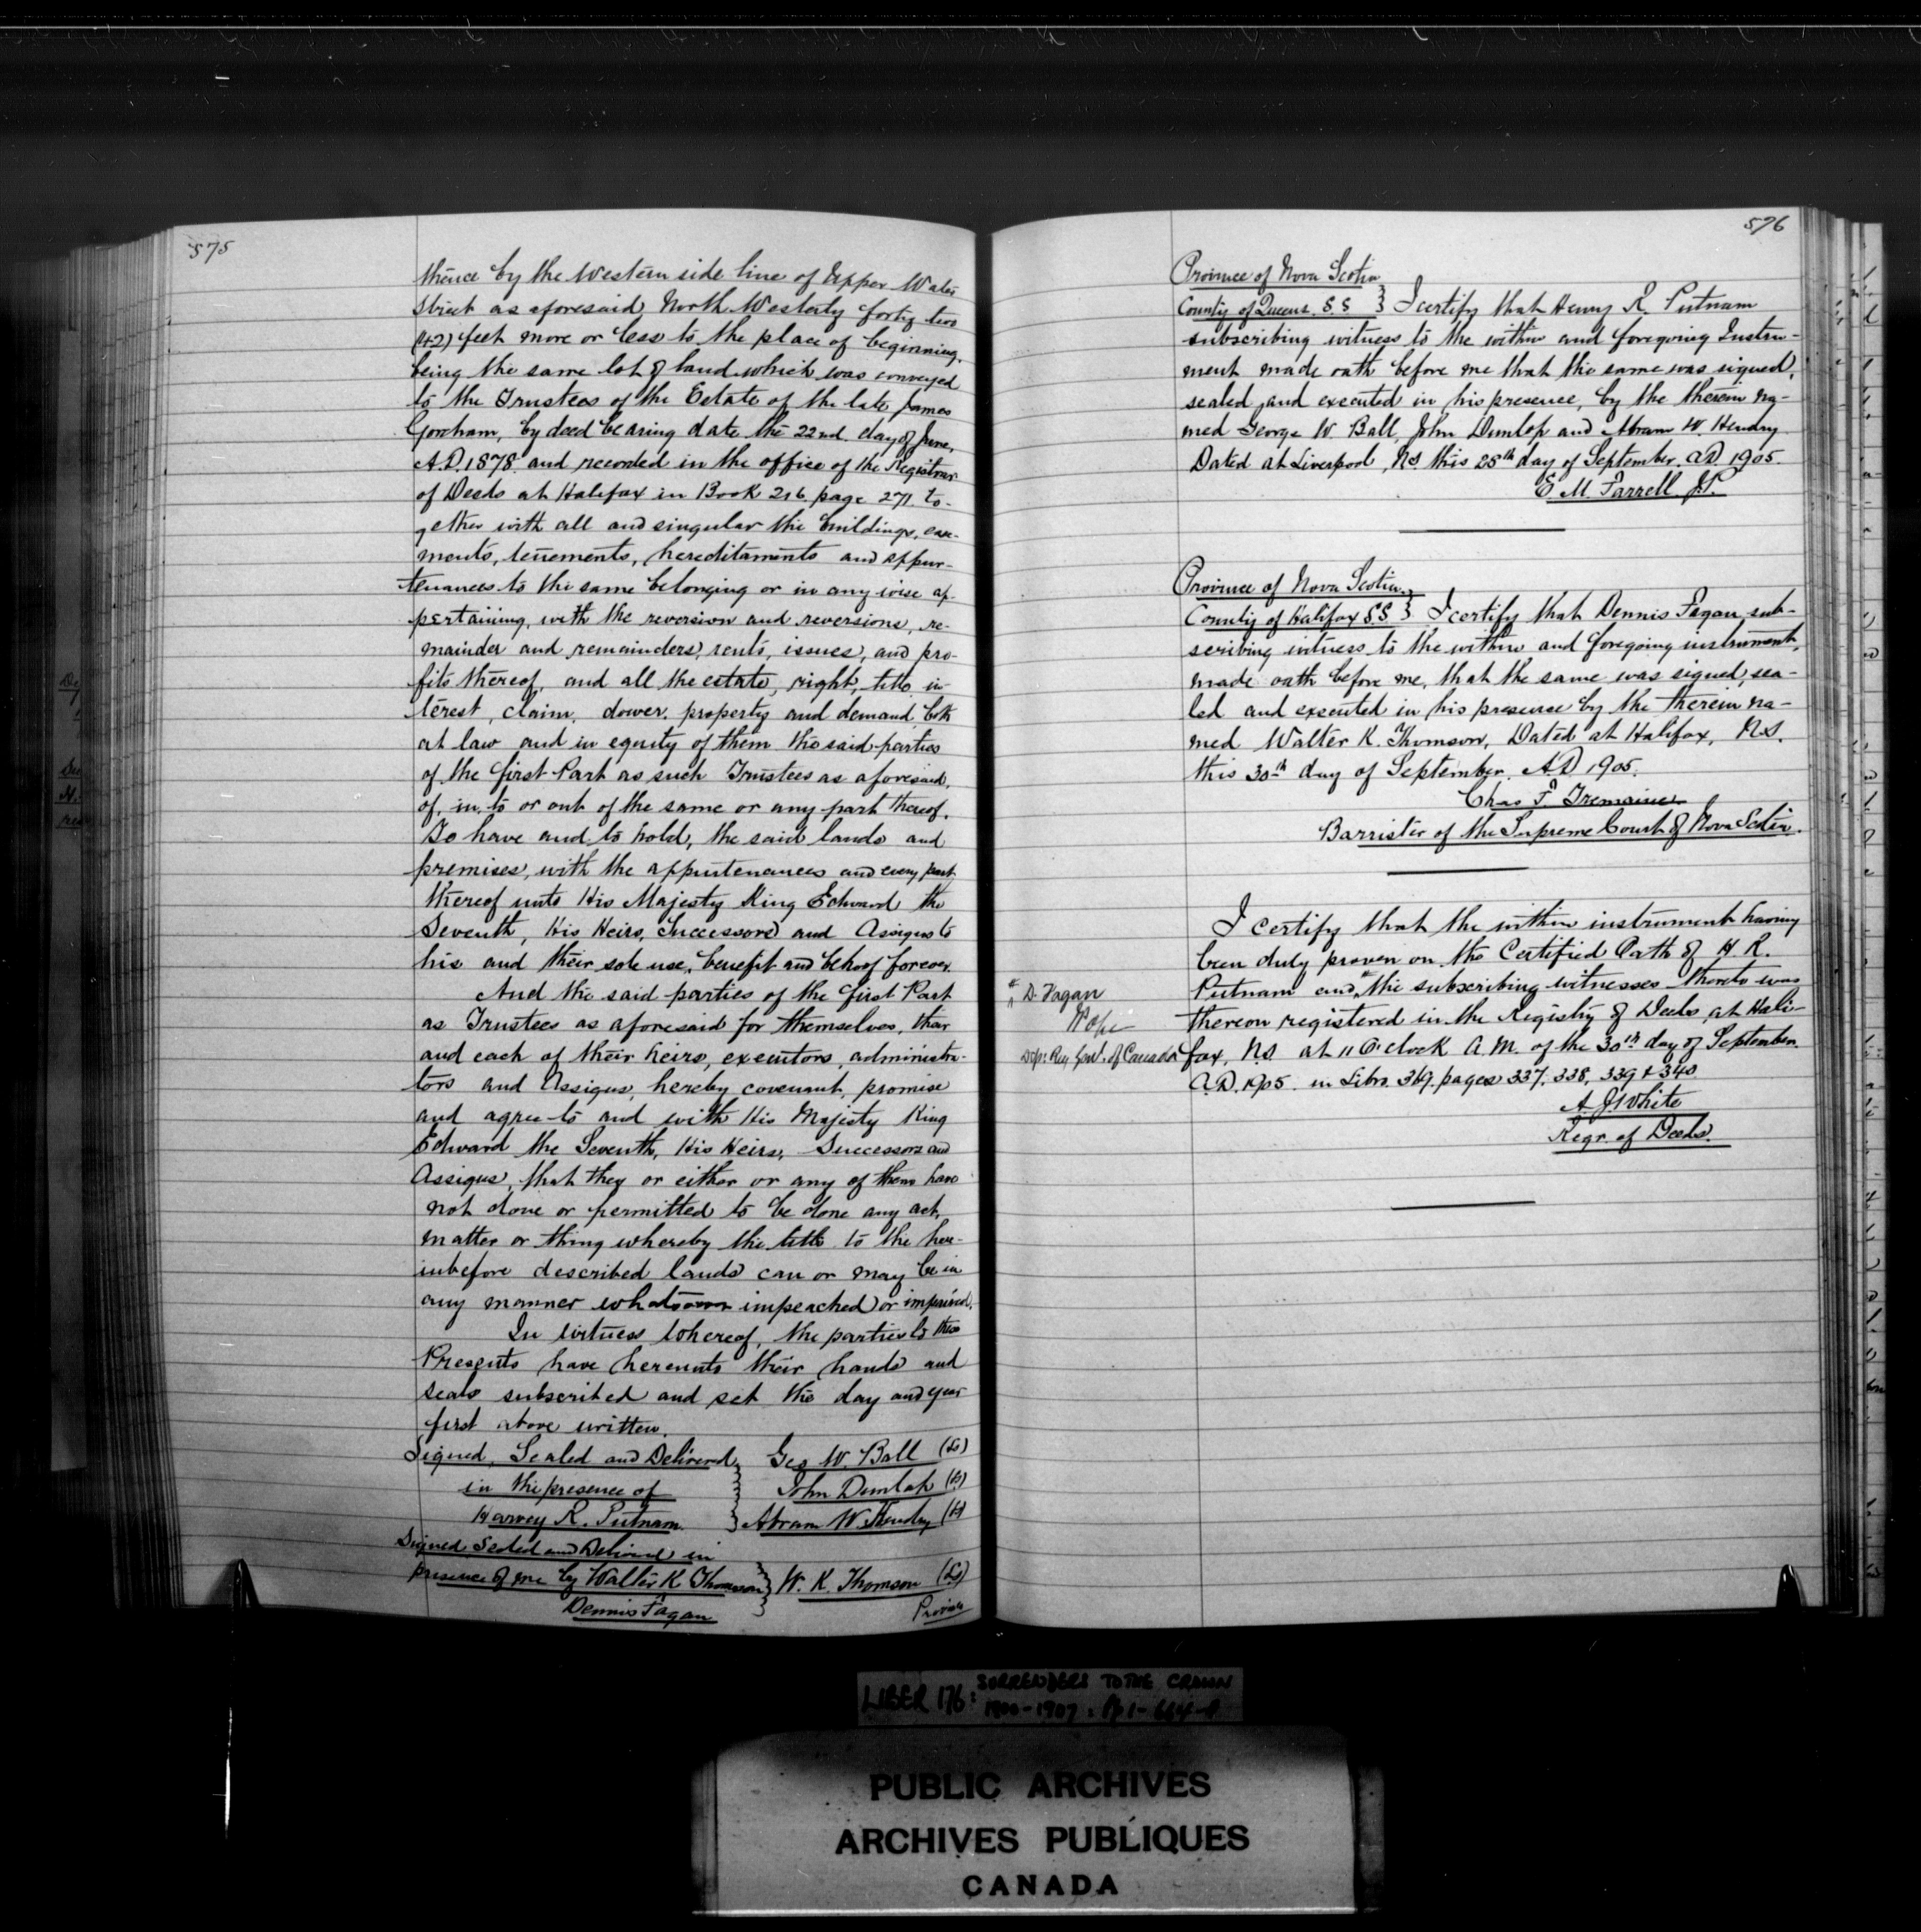 575
thence by the Western side line of Upper Water
Street as aforesaid North Westerly forty two
(42) feet more or less to the place of beginning,
being the same lot of land which was conveyed
to the Trustees of the Estate of the late James
Gorcham, by deed bearing date the 22nd day of June,
A.D. 1878. and recorded in the office of the Registrar
of Deeds at Halifax in Book 216. page 271. to-
gether with all and singular the buildings, ease-
ments, tenements, hereditaments and appur-
tenances to the same belonging or in any wise ap-
pertaining, with the reversion and reversions, re-
mainder and remainders, rents, issues, and pro-
fits thereof, and all the estate, right, title in-
terest, claim, dower, property and demand both
at law and in equity of them the said parties
of the first Part as such Trustees as aforesaid,
of, in, to or out of the same or any part thereof.
To have and to hold, the said lands and
premises, with the appurtenances and every part
thereof unto His Majesty King Edward the
Seventh, His Heirs, Successors and Assigns to
his and their sole use, benefit and behoof forever.
And the said parties of the first Part
as Trustees as aforesaid for themselves, their
and each of their heirs, executors, administra-
tors and Assigns, hereby covenant, promise
and agree to and with His Majesty King
Edward the Seventh, His Heirs, Successors and
Assigns, that they or either or any of them have
not done or permitted to be done any act,
matter or thing whereby the title to the here-
inbefore described lands can or may be in
any manner whatsoever impeached or impaired.
In witness whereof, the parties to these
Presents have hereunto their hands and
seals subscribed and set the day and year
first above written.
Signed, Sealed and Delivered } Geo W. Ball (Ls)
in the presence of } John Dunlap (Ls)
Harvey R. Putnam } Abram W. Hendry (Ls)
Signed Sealed and Delivered in
presence of me by Walter K Thomson } W. K. Thomson (Ls)
Dennis Fagan
Province
576
Province of Nova Scotia
County of Queens. S.S } I certify that Henry R. Putnam
subscribing witness to the within and foregoing Instru-
ment made oath before me that the same was signed,
sealed and executed in his presence, by the therein na-
med George W. Ball, John Dunlop and Abram W. Hendry
Dated at Liverpool, NS this 28th day of September, A.D. 1905.
E M Farrell J.P.
Province of Nova Scotia
County of Halifax S.S. } I certify that Dennis Fagan sub-
scribing witness to the within and foregoing instrument,
made oath before me, that the same was signed, sea-
led and executed in his presence by the therein na-
med Walter K. Thomson, Dated at Halifax, N.S.
this 30th day of September, A.D. 1905.
Chas F. Tremaine
Barrister of the Supreme Court of Nova Scotia.
I certify that the within instrument having
been duly proven on the Certified Oath of H. R.
Putnam and * the subscribing witnesses thereto was
* D. Fagan
Pope
Dep: Reg. Genl. of Canada
thereon registered in the Registry of Deeds, at Hali-
fax, NS at 11 O'clock A.M. of the 30th day of September
A.D. 1905. in Libro. 369. pages 337, 338, 339 & 340
A. J White
Regr. of Deeds.
LIBER 176: SURRENDERS TO THE CROWN
1900-1907: Pp 1-664-A
PUBLIC ARCHIVES
ARCHIVES PUBLIQUES
CANADA